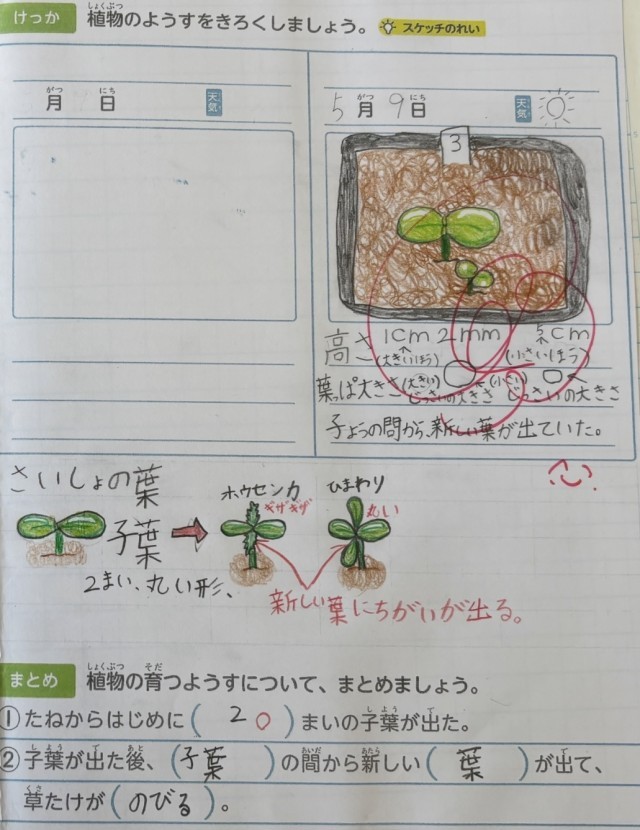 けっか 植物のようすをきろくしましょう。 スケッチのれい
月 日 天気
5月9日 天気
3
高さ 1cm 2mm cm
(大きいほう) (小さいほう)
葉っぱ大きさ(大きい) じっさいの大きさ (小さい) じっさいの大きさ
子ようの間から、新しい葉が出ていた。
さいしょの葉
子葉
2まい、丸い形、
ホウセンカ
ギザギザ
ひまわり
丸い
新しい葉にちがいが出る。
まとめ 植物の育つようすについて、まとめましょう。
①たねからはじめに( 2 )まいの子葉が出た。
②子葉が出た後、(子葉)の間から新しい(葉)が出て、
草たけが(のびる)。